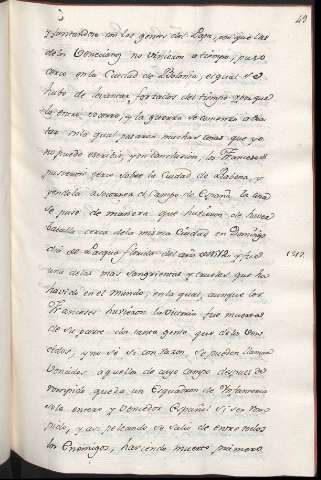 49
y juntandose con las gentes del Papa, por que las
delos Venecianos no vinieron a tiempo, puso
cerco en la Ciudad de Bolonia, el qual se
hubo de levantar forzados del tiempo y en que
le entro socorro, y la guerra se comenzo a tra-
tar en la qual pasaron muchas cosas que yo
no puedo escribir, y en conclusion, los Franceses
pusieron cerco sobre la Ciudad de Rabena, y
yendola a socorrer el Campo de España la cosa
se puso de manera, que hubieron de haver
batalla cerca de la misma Ciudad en Domingo
dia de Pasqua florida del año 1512 y fue
1512.
una delas mas sangrientas y crueles que ha
havido en el mundo, en la qual, aunque los
Franceses huvieron la Victoria fue muerta
de su parte tanta gente, que delos ven-
cidos, y no sé si con razon, se pueden llamar
Vencidos aquellos de cuyo campo despues de
rompido queda un Esquadron de Infanteria
sola entero y vencedor Español si ser rom-
pido, y asi peleando se salio de entre todos
los Enemigos, haciendo muerto primero